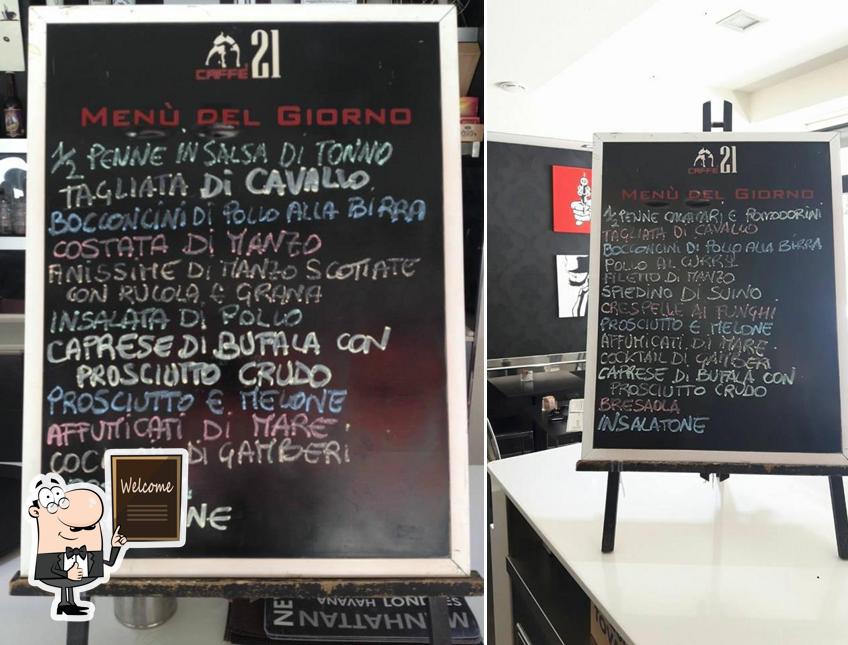 CAFFÈ 21
MENÙ DEL GIORNO
1/2 PENNE IN SALSA DI TONNO
TAGLIATA DI CAVALLO
BOCCONCINI DI POLLO ALLA BIRRA
COSTATA DI MANZO
FINISSIME DI MANZO SCOTTATE
CON RUCOLA E GRANA
INSALATA DI POLLO
CAPRESE DI BUFALA CON
PROSCIUTTO CRUDO
PROSCIUTTO E MELONE
AFFUMICATI DI MARE
DI GAMBERI
Welcome
NE
CAFFÈ 21
MENÙ DEL GIORNO
1/2 PENNE CALAMARI E POMODORINI
TAGLIATA DI CAVALLO
BOCCONCINI DI POLLO ALLA BIRRA
POLLO AL CURRY
FILETTO DI MANZO
SPIEDINO DI SUINO
CRESPELLE AI FUNGHI
PROSCIUTTO E MELONE
AFFUMICATI DI MARE
COCKTAIL DI GAMBERI
CAPRESE DI BUFALA CON
PROSCIUTTO CRUDO
BRESAOLA
INSALATONE